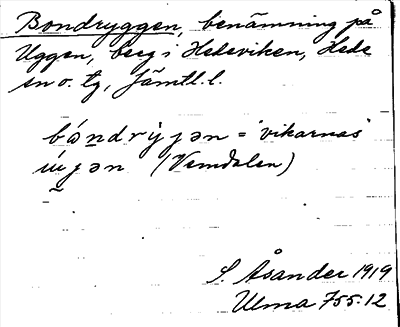 Bondryggen, benämning på
Uggen, berg i Hedeviken, Hede
sn o. tg, Jämtl. l.
bándrỳjən = "vikarnas"
ʉ́jən (Vemdalen)
S. Åsander 1919
Ulma 755:12